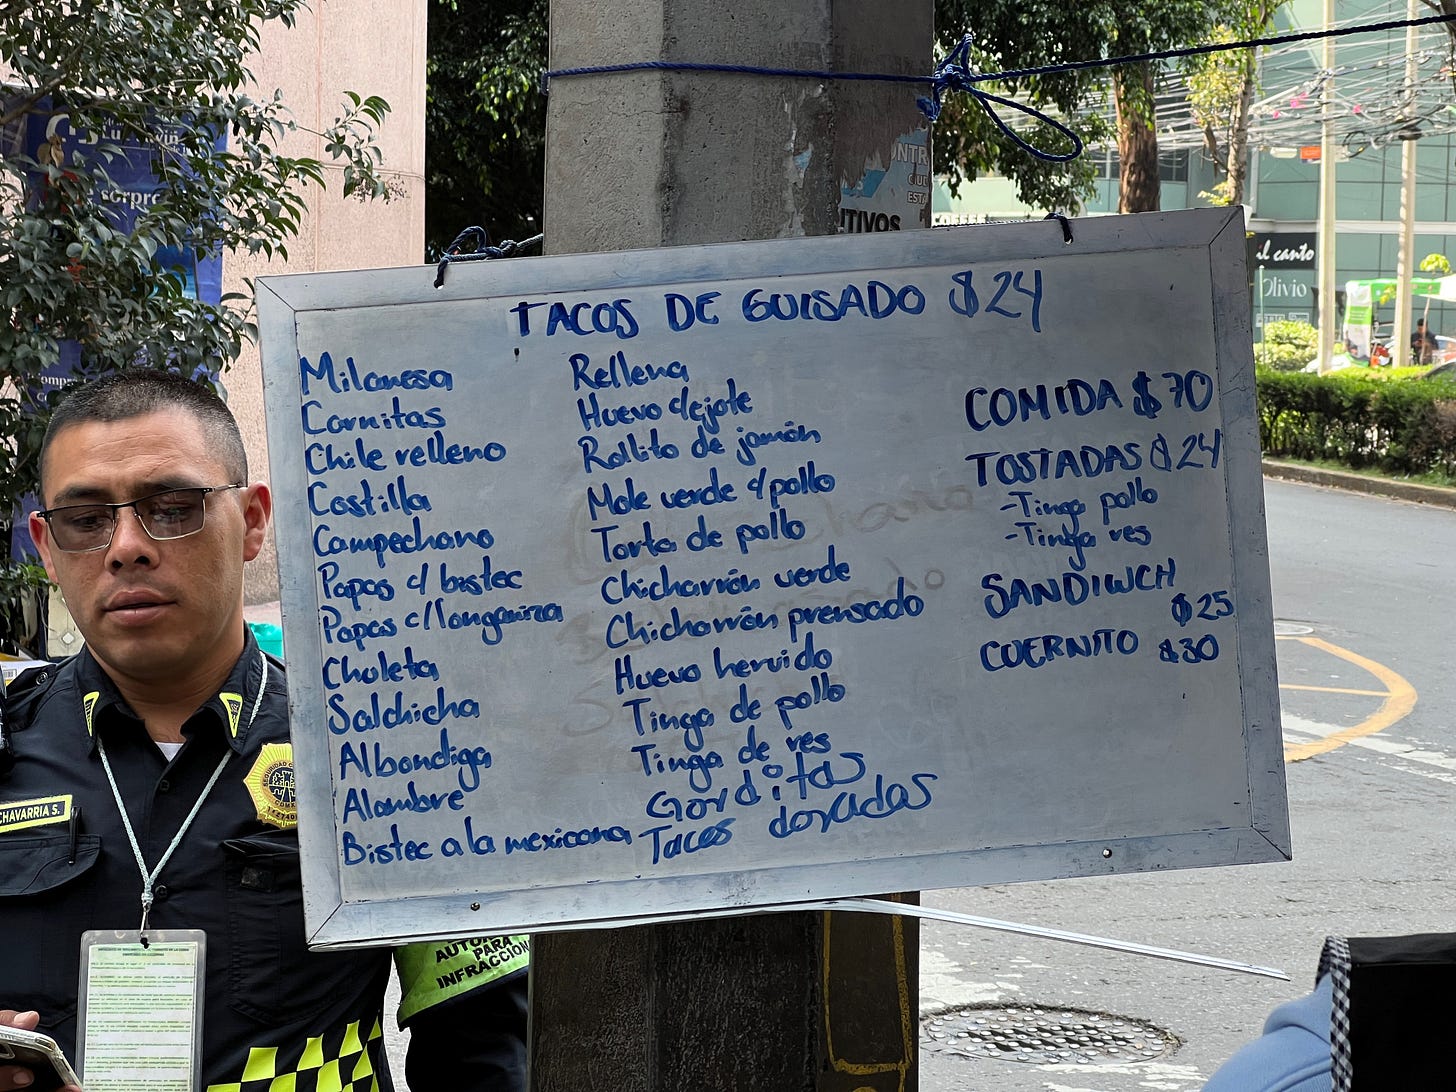 TACOS DE GUISADO $24
Milanesa
Carnitas
Chile relleno
Costilla
Campechano
Papas c/ bistec
Papas c/longaniza
Chuleta
Salchicha
Albondiga
Alambre
Bistec a la mexicana
Rellena
Huevo c/ejote
Rollito de jamón
Mole verde c/pollo
Torta de pollo
Chicharrón verde
Chicharrón prensado
Huevo hervido
Tinga de pollo
Tinga de res
Gorditas
Tacos dorados
COMIDA $70
TOSTADAS $24
-Tinga pollo
-Tinga res
SANDIWCH
$25
CUERNITO $30
CHAVARRIA S.
PARA
INFRACCION
il canto
Olivio